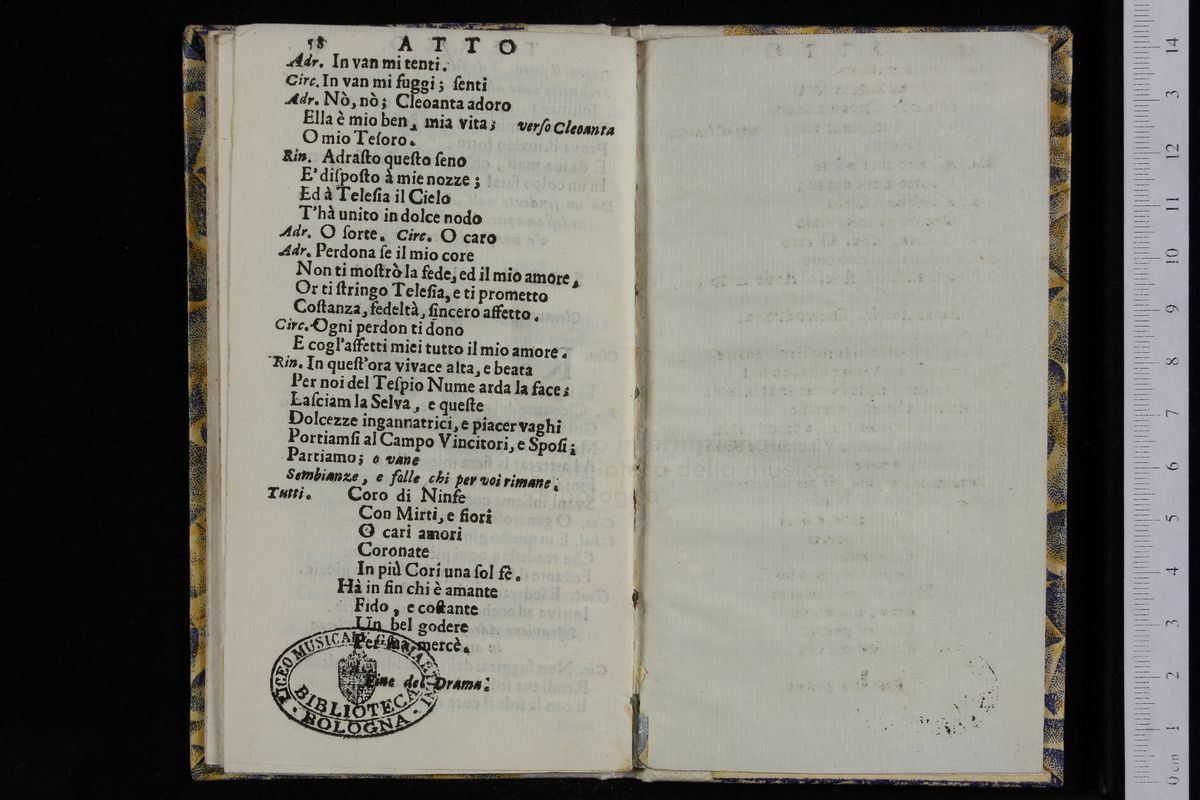 58 ATTO
Adr. In van mi tenti.
Circ. In van mi fuggi; ſenti
Adr. Nò, nò; Cleoanta adoro
Ella è mio ben, mia vita; verſo Cleoanta
O mio Teſoro.
Rin. Adraſto queſto ſeno
E' diſpoſto à mie nozze;
Ed à Teleſia il Cielo
T'hà unito in dolce nodo
Adr. O ſorte. Circ. O caro
Adr. Perdona ſe il mio core
Non ti moſtrò la fede, ed il mio amore,
Or ti ſtringo Teleſia, e ti prometto
Coſtanza, fedeltà, ſincero affetto.
Circ. Ogni perdon ti dono
E cogl'affetti miei tutto il mio amore.
Rin. In queſt'ora vivace alta, e beata
Per noi del Teſpio Nume arda la face;
Laſciam la Selva, e queſte
Dolcezze ingannatrici, e piacer vaghi
Portiamſi al Campo Vincitori, e Spoſi;
Partiamo; o vane
Sembianze, e folle chi per voi rimane.
Tutti. Coro di Ninfe
Con Mirti, e fiori
O cari amori
Coronate
In più Cori una ſol fè.
Hà in fin chi è amante
Fido, e coſtante
Un bel godere
Per ſua mercè.
Fine del Drama.
LICEO MUSICALE G.B. MARTINI
BIBLIOTECA
BOLOGNA
museo internazionale
biblioteca della musica
bologna
14
3
12
11
10
9
8
7
6
5
4
3
2
1
0 cm